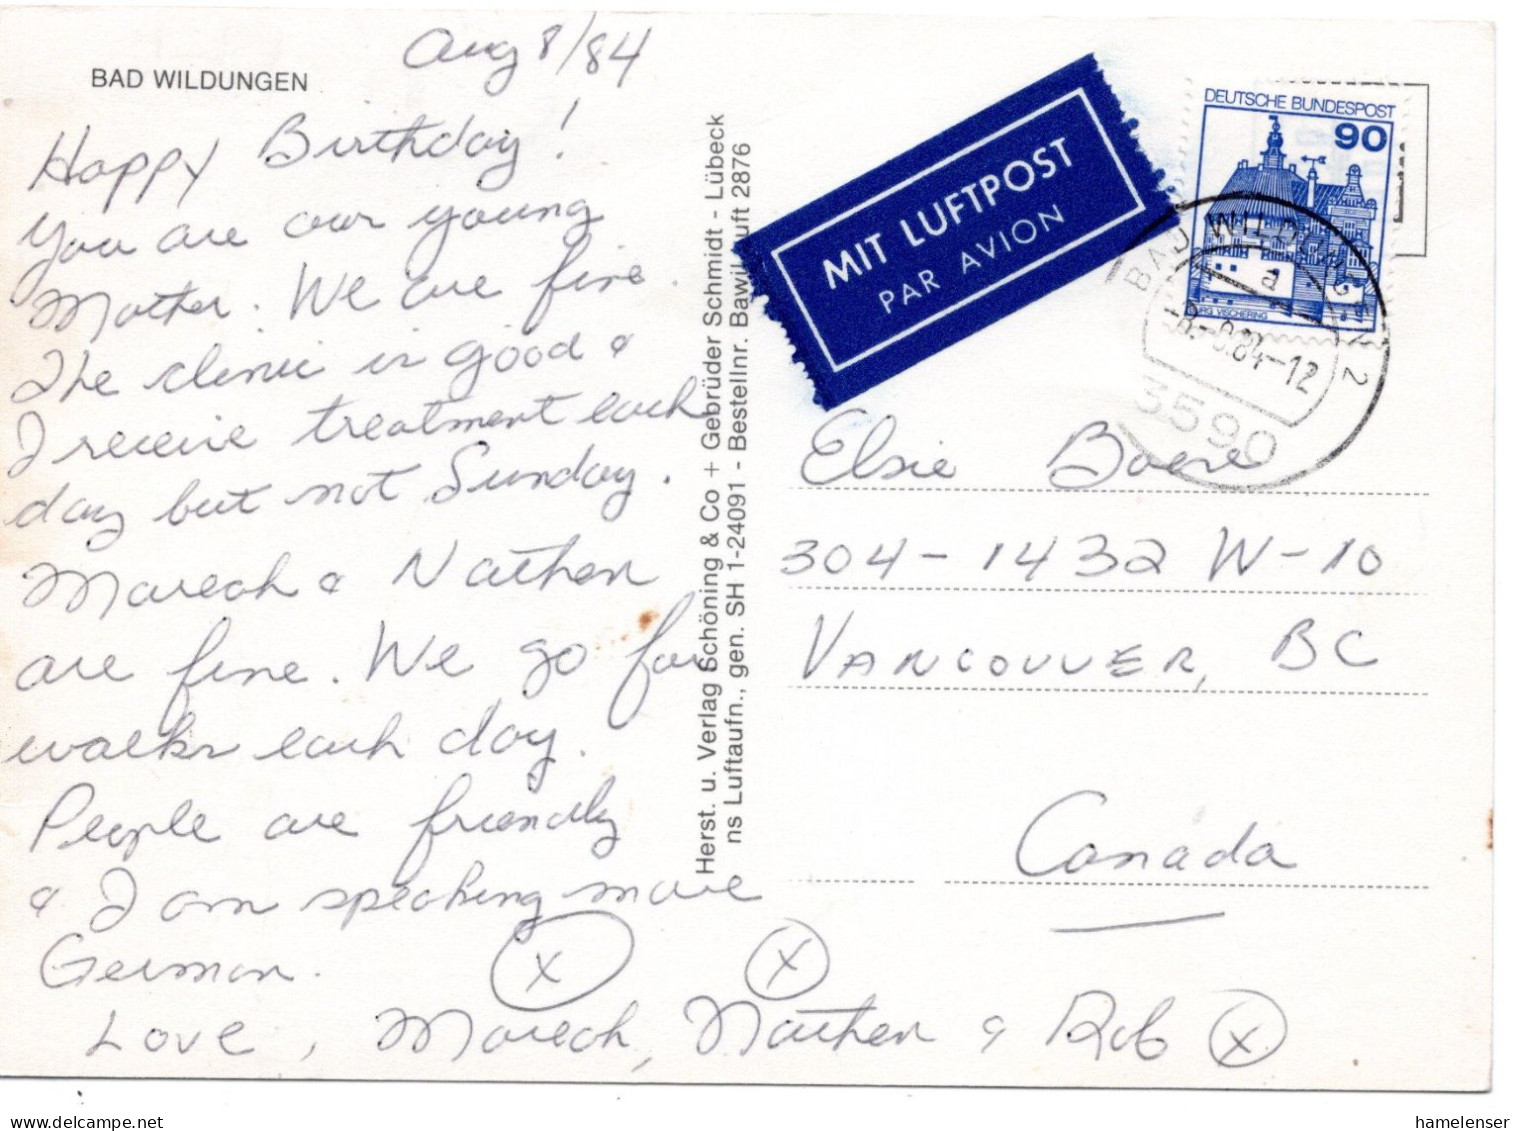 Aug 8/84
BAD WILDUNGEN
Happy Birthday!
You are our young
Mother. We are fine.
The clinic is good &
I receive treatment each
day but not Sunday.
Marech & Nathen
are fine. We go for
walks each day.
People are friendly
& I am speaking more
German.
Love, Marech, Nathen & Rob
x
x
x
Herst. u. Verlag Schöning & Co + Gebrüder Schmidt - Lübeck
ns Luftaufn., gen. SH 1-24091 - Bestellnr. Bawi Luft 2876
MIT LUFTPOST
PAR AVION
DEUTSCHE BUNDESPOST
90
BURG VISCHERING
BAD WILDUNGEN 2
a
-8.-8.84-12
3590
Elsie Boere
304-1432 W-10
VANCOUVER, BC
Canada
hamelenser